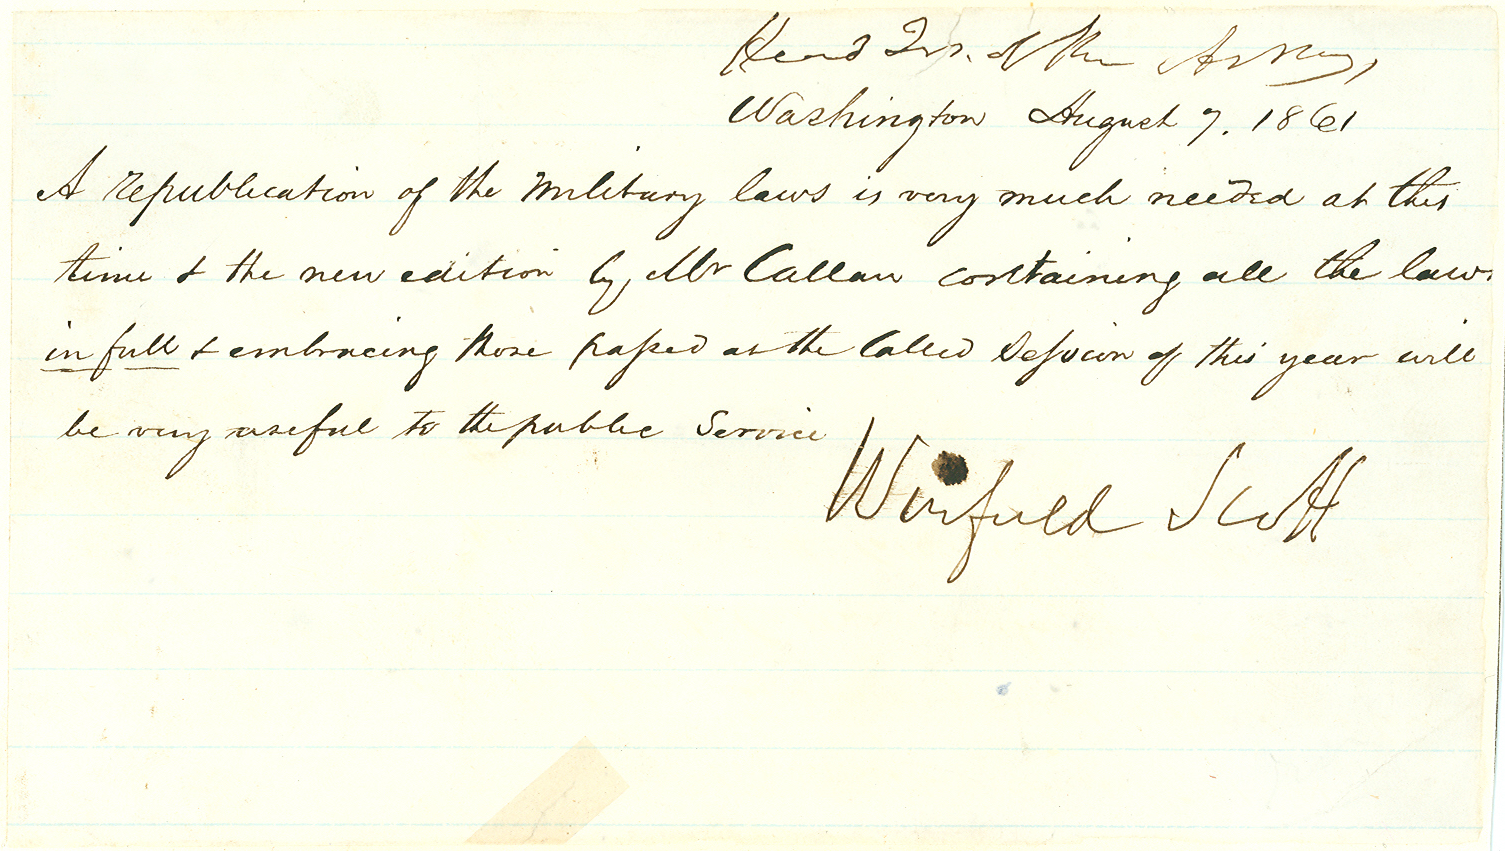 Head Qrs. of the Army,
Washington August 7. 1861
A republication of the Military laws is very much needed at this
time & the new edition by Mr Callan containing all the laws
in full & embracing those passed at the Called Session of this year will
be very useful to the public Service
Winfield Scott